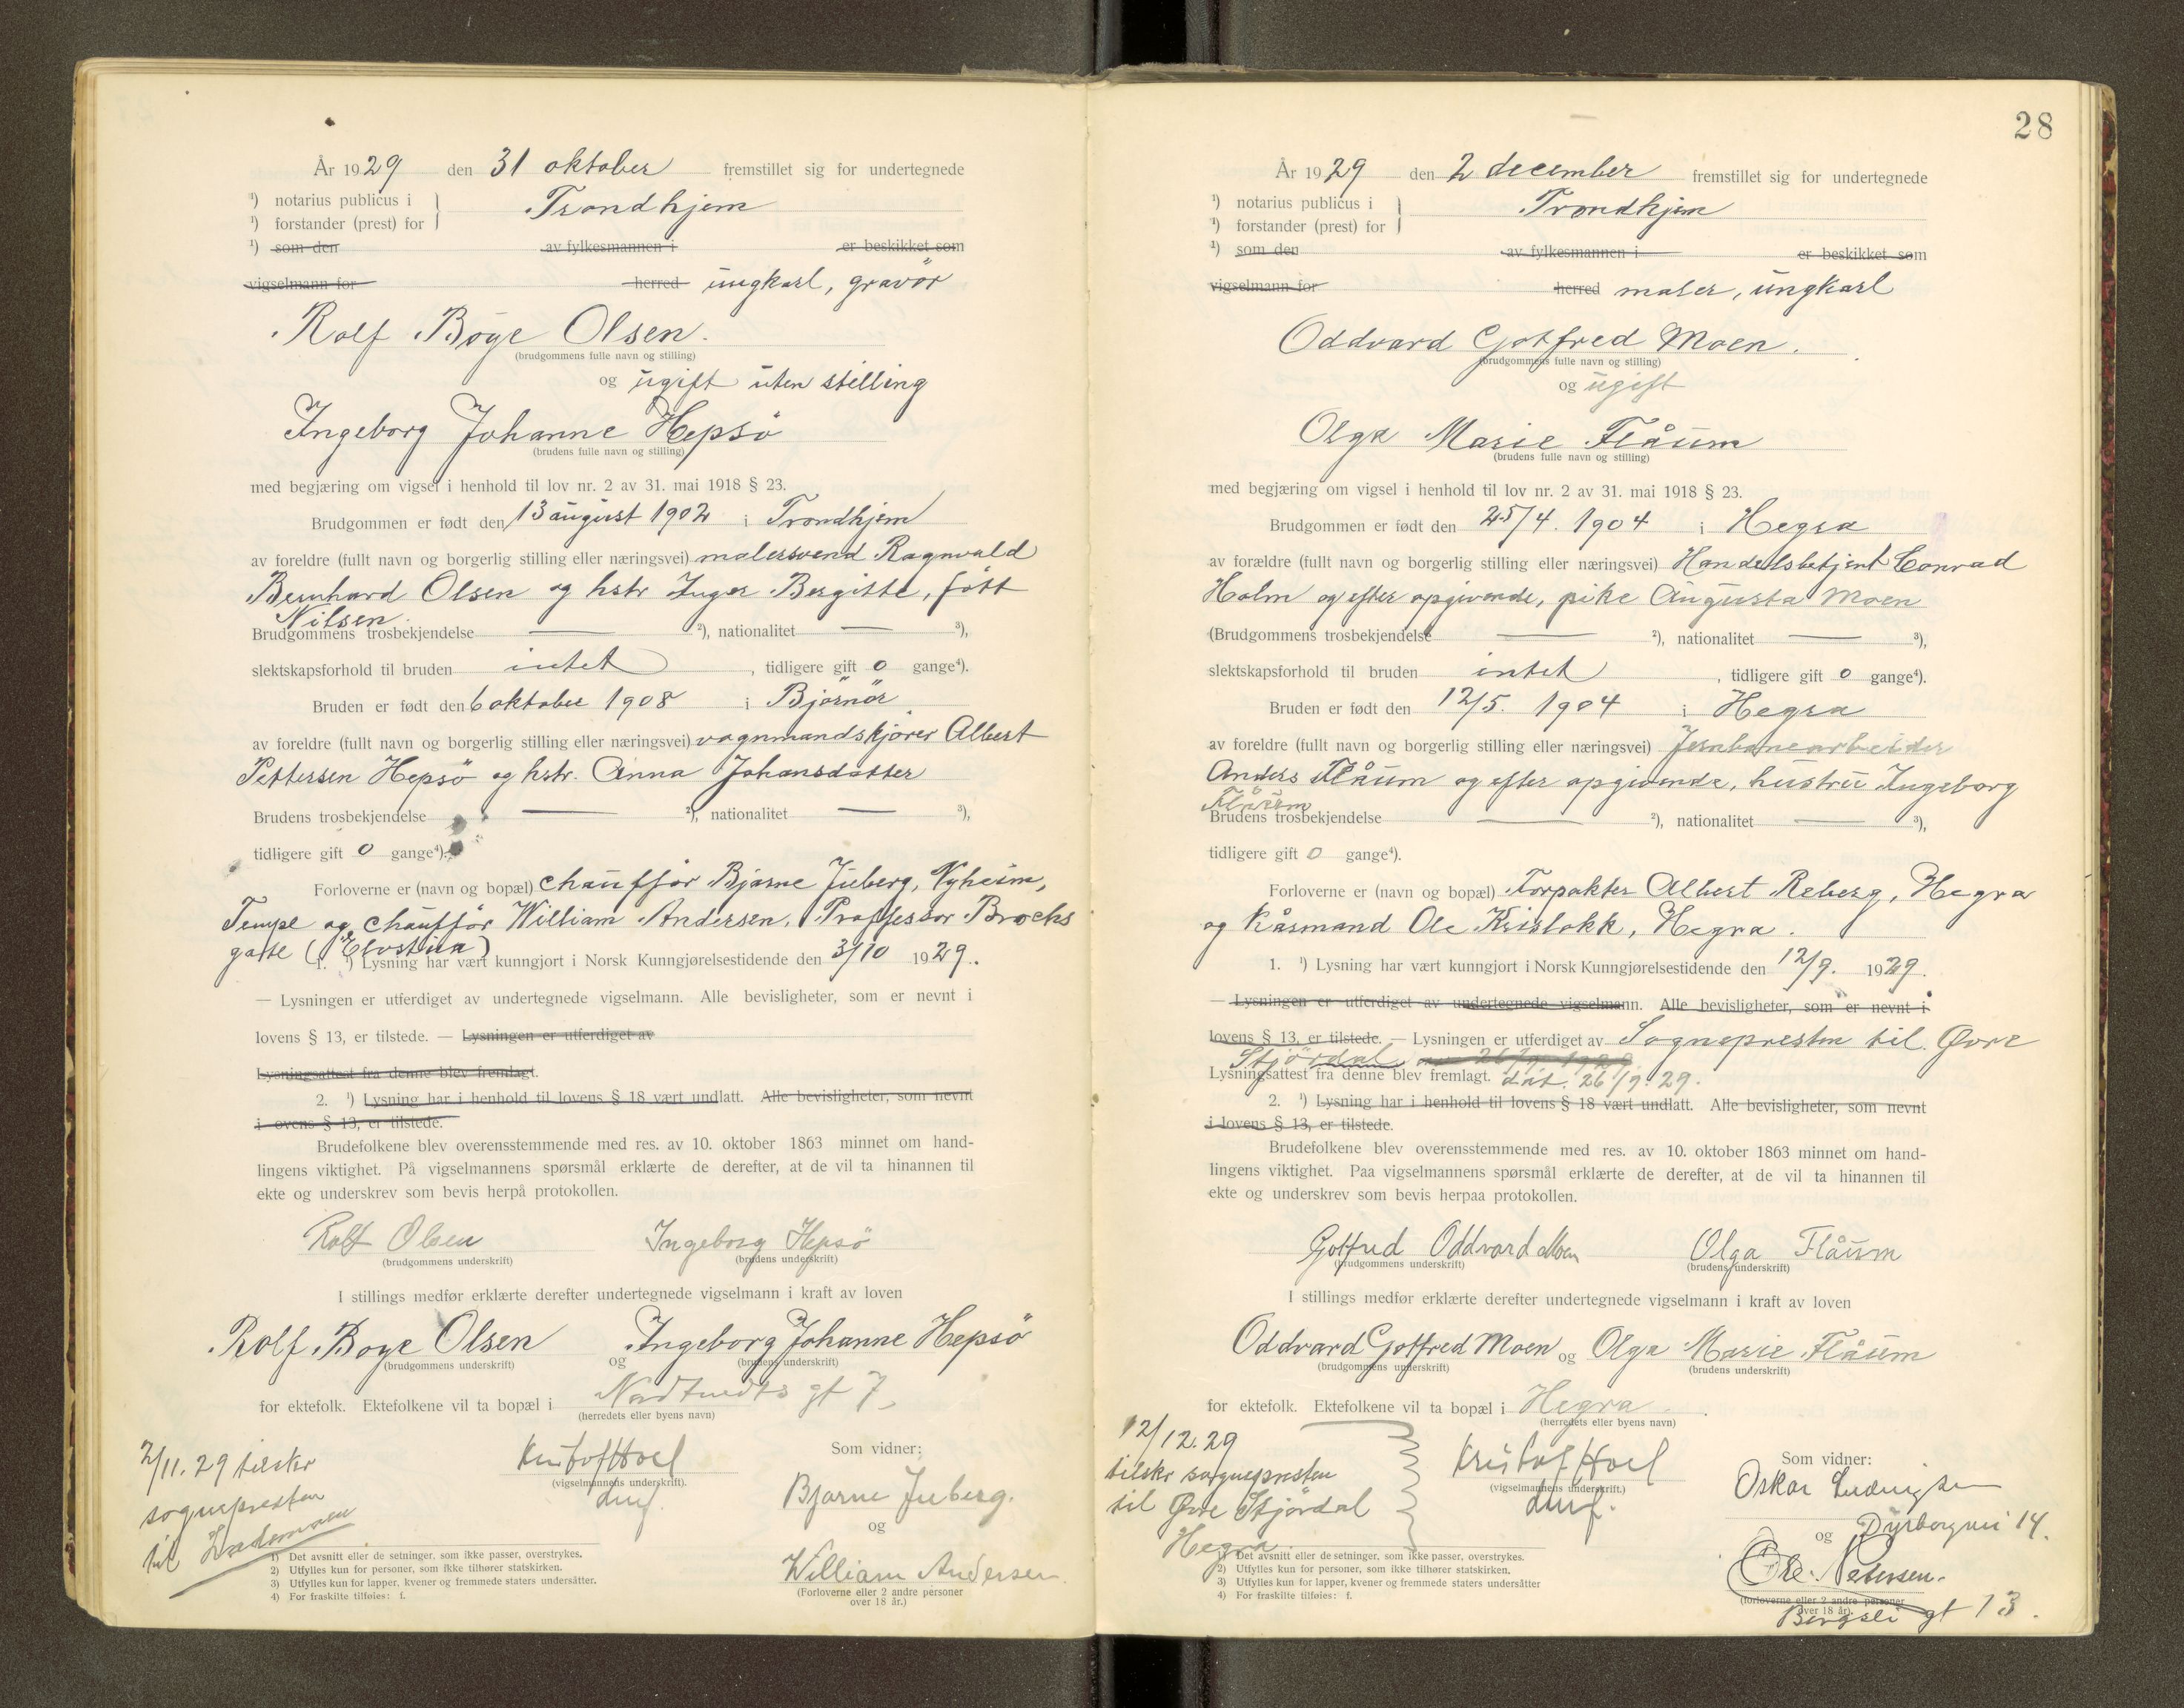 År 1929 den 31 oktober fremstillet sig for undertegnede
¹) notarius publicus i
¹) forstander (prest) for } Trondhjem
¹) som den av fylkesmannen i er beskikket som
vigselmann for herred ungkarl, gravör
Rolf Böye Olsen.
(brudgommens fulle navn og stilling)
og ugift uten stilling
Ingeborg Johanne Hepsö
(brudens fulle navn og stilling)
med begjæring om vigsel i henhold til lov nr. 2 av 31. mai 1918 § 23.
Brudgommen er født den 13 august 1902 i Trondhjem
av foreldre (fullt navn og borgerlig stilling eller næringsvei) malersvend Ragnvald
Bernhard Olsen og hstr Inger Bergitte, fött
Nilsen.
Brudgommens trosbekjendelse — ²), nationalitet — ³),
slektskapsforhold til bruden intet, tidligere gift 0 gange⁴).
Bruden er født den 6 oktober 1908 i Björnör
av foreldre (fullt navn og borgerlig stilling eller næringsvei) vognmandskjörer Albert
Pettersen Hepsö og hstr. Anna Johansdatter
Brudens trosbekjendelse — ²), nationalitet — ³),
tidligere gift 0 gange⁴).
Forloverne er (navn og bopæl) chauffør Bjarne Juberg, Nyheim,
Tempe og chauffør William Andersen, Proffessor Brochs
gate
1. ¹) Lysning har vært kunngjort i Norsk Kunngjørelsestidende den 3/10 1929.
— Lysningen er utferdiget av undertegnede vigselmann. Alle bevisligheter, som er nevnt i
lovens § 13, er tilstede. — Lysningen er utferdiget av
Lysningsattest fra denne blev fremlagt.
2. ¹) Lysning har i henhold til lovens § 18 vært undlatt. Alle bevisligheter, som nevnt
i ovens § 13, er tilstede.
Brudefolkene blev overensstemmende med res. av 10. oktober 1863 minnet om hand-
lingens viktighet. På vigselmannens spørsmål erklærte de derefter, at de vil ta hinannen til
ekte og underskrev som bevis herpå protokollen.
Rolf Olsen Ingeborg Hepsö
(brudgommens underskrift) (brudens underskrift)
I stillings medfør erklærte derefter undertegnede vigselmann i kraft av loven
Rolf Boye Olsen og Ingeborg Johanne Hepsö
(brudgommens underskrift) (brudens underskrift)
for ektefolk. Ektefolkene vil ta bopæl i gt 7
(herredets eller byens navn)
2/11. 29 tilskr
sognepresten
til Lademoen
Kristof Hoel
(vigselmannens underskrift).
Som vidner:
Bjarne Juberg.
og
William Andersen
(Forloverne eller 2 andre personer
over 18 år.)
1) Det avsnitt eller de setninger, som ikke passer, overstrykes.
2) Utfylles kun for personer, som ikke tilhører statskirken.
3) Utfylles kun for lapper, kvener og fremmede staters undersåtter.
4) For fraskilte tilføies: f.
28
År 1929 den 2 december fremstillet sig for undertegnede
¹) notarius publicus i
¹) forstander (prest) for } Trondhjem
¹) som den av fylkesmannen i er beskikket som
vigselmann for herred maler, ungkarl
Oddvard Gotfred Moen.
(brudgommens fulle navn og stilling)
og ugift
Olga Marie Flåum
(brudens fulle navn og stilling)
med begjæring om vigsel i henhold til lov nr. 2 av 31. mai 1918 § 23.
Brudgommen er født den 25/4. 1904 i Hegra
av forældre (fullt navn og borgerlig stilling eller næringsvei) Handelsbetjent Conrad
Holm og efter opgivende, pike Augusta Moen
(Brudgommens trosbekjendelse — ²), nationalitet — ³),
slektskapsforhold til bruden intet, tidligere gift 0 gange⁴).
Bruden er født den 12/5. 1904 i Hegra
av foreldre (fullt navn og borgerlig stilling eller næringsvei) Jernbanearbeider
Anders Flåum og efter opgivende, hustru Ingeborg
Flåum
Brudens trosbekjendelse — ²), nationalitet — ³),
tidligere gift 0 gange⁴).
Forloverne er (navn og bopæl) Forpakter Albert Reberg, Hegra
og Råsmand Ole Krislokk, Hegra.
1. ¹) Lysning har vært kunngjort i Norsk Kunngjørelsestidende den 12/9. 1929.
— Lysningen er utferdiget av undertegnede vigselmann. Alle bevisligheter, som er nevnt i
lovens § 13, er tilstede. — Lysningen er utferdiget av Sognepresten til Øvre
Stjördal 26/9 1929
Lysningsattest fra denne blev fremlagt. dat. 26/9. 29.
2. ¹) Lysning har i henhold til lovens § 18 vært undlatt. Alle bevisligheter, som nevnt
i lovens § 13, er tilstede.
Brudefolkene blev overensstemmende med res. av 10. oktober 1863 minnet om hand-
lingens viktighet. Paa vigselmannens spørsmål erklærte de derefter, at de vil ta hinannen til
ekte og underskrev som bevis herpaa protokollen.
Gotfred Oddvard Moen Olga Flåum
(brudgommens underskrift) (brudens underskrift)
I stillings medfør erklærte derefter undertegnede vigselmann i kraft av loven
Oddvard Gotfred Moen og Olga Marie Flåum
(brudgommens underskrift) (brudens underskrift)
for ektefolk. Ektefolkene vil ta bopæl i Hegra.
(herredets eller byens navn)
12/12.29
tilskr sognepresten
til Øvre Stjördal
Hegra
Kristof Hoel
(vigselmannens underskrift.)
Som vidner:
Oskar Ludvigsen
og 14.
Ole Petersen.
(forloverne eller 2 andre personer
over 18 år).
Bergsli gt 13.
1) Det avsnitt eller de setninger, som ikke passer, overstrykes.
2) Utfylles kun for personer, som ikke tilhører statskirken.
3) Utfylles kun for lapper, kvener og fremmede staters undersåtter
4) For fraskilte tilføies: f.